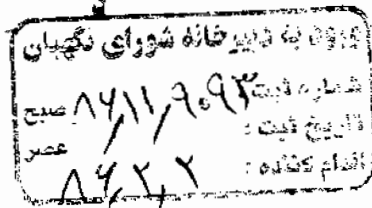 ورود به دبیرخانه شورای نگهبان
شماره ثبت: ۸۶/۱۱/۹۰۹۳ صبح
تاریخ ثبت: ۸۶/۲/۲ عصر
اقدام کننده: